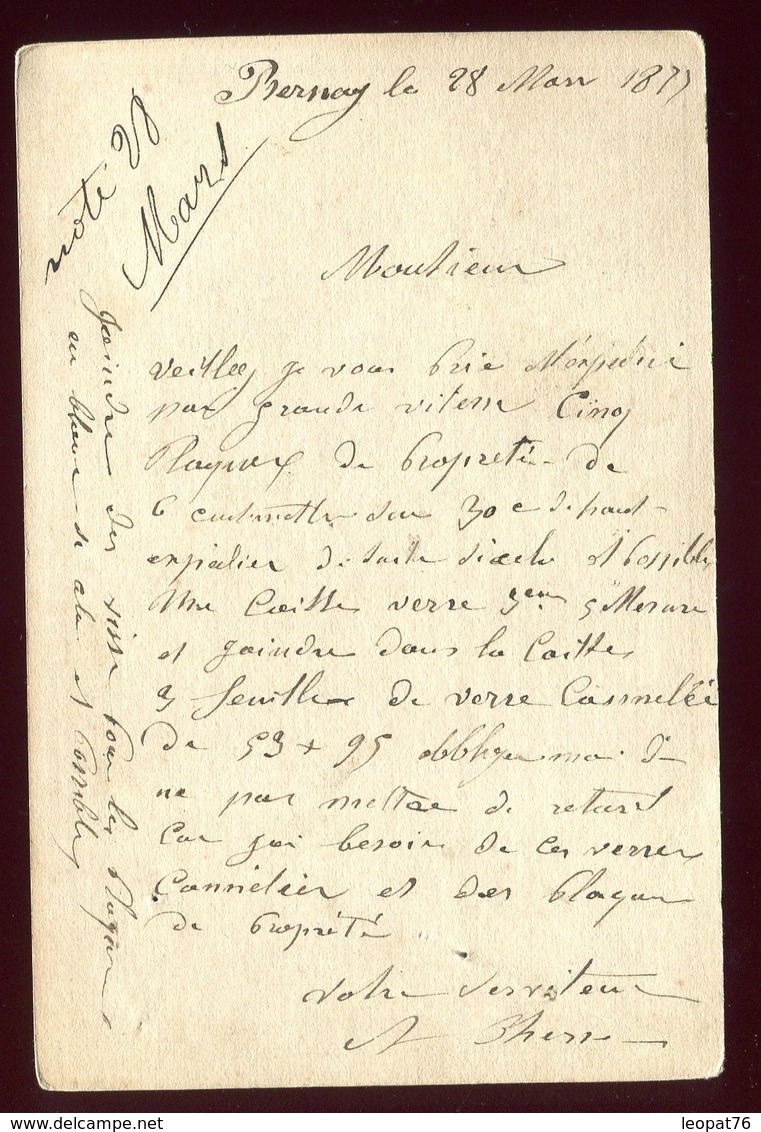 Bernay le 28 Mars 1877
noté 28
Mars
Monsieur
veilley je vous prie M'expedié
par grande vitesse Cinq
Plaques de propreté de
6 centimettre sur 30 c de haut
expédier de suite si cela et possible
Une Caisse verre 3eme 5 Mesure
et joindre dans la Caisse
3 feuilles de verre Cannellé
de 53 + 95 obbligez moi de
ne pas mettre de retard
Car jai besoin de ces verres
Cannelier et des plaques
de propreté
votre serviteur
A
Joindre des visse pour les plaques
en si cela et possible
leopat76
delcampe.net